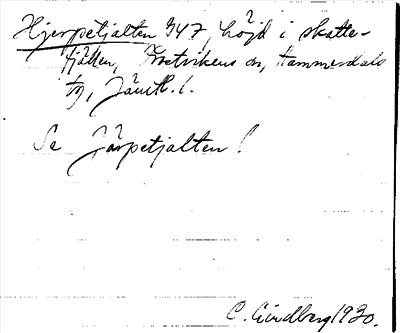 Hjerpetjalten 747, höjd i skatte-
fjällen, Prostvikens sn, Hammerdals
tg, Jämtl. l.
Se Järpetjalten!
C. Lindberg 1930.